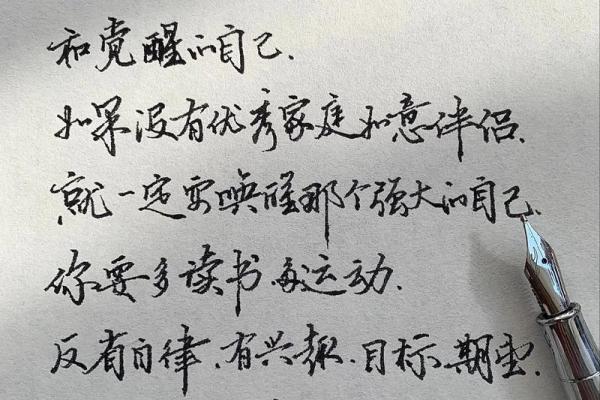 和觉醒的自己.
如果没有优秀家庭如意伴侣、
就一定要唤醒那个强大的自己、
你要多读书多运动.
反有自律、有兴趣、目标、期望.